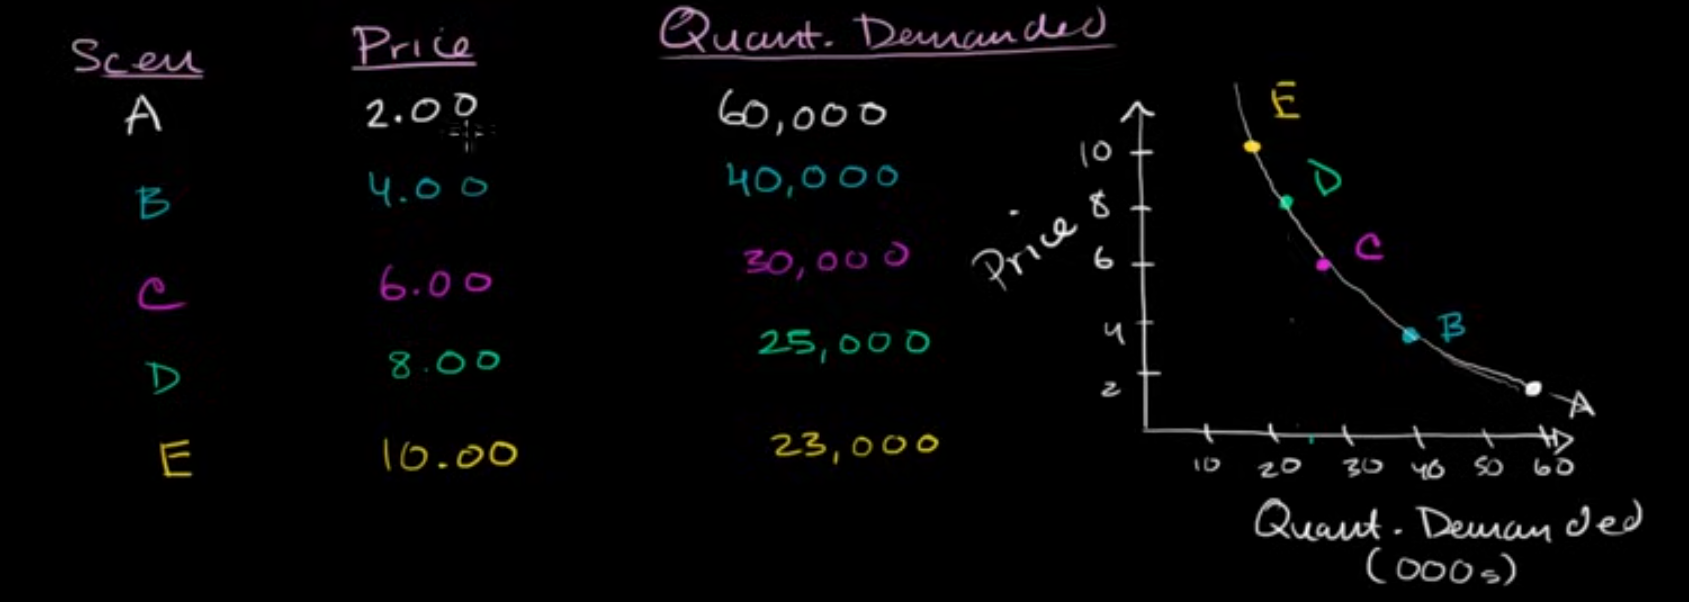 Scen Price Quant. Demanded
A 2.00 60,000
B 4.00 40,000
C 6.00 30,000
D 8.00 25,000
E 10.00 23,000
E
10
D
8
Price
C
6
4
B
2
A
10 20 30 40 50 60
Quant. Demanded
(000s)